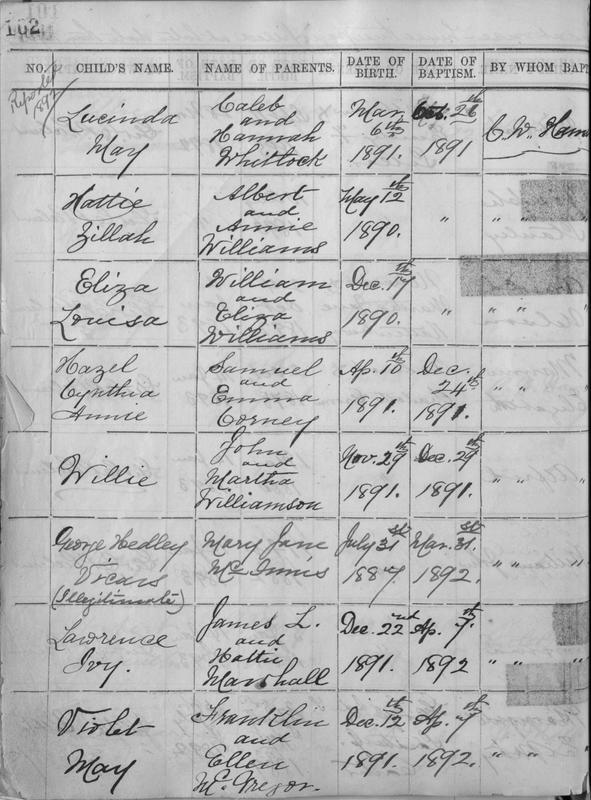 102
NO. CHILD'S NAME. NAME OF PARENTS. DATE OF BIRTH. DATE OF BAPTISM. BY WHOM BAPT
Reported 189
Lucinda May Caleb and Hannah Whittock Mar 6th 1891. Oct. 26th 1891 C. W.
Hattie Zillah Albert and Annie Williams May 12th 1890. " " "
Eliza Louisa William and Eliza Williams Dec. 17th 1890. " " "
Hazel Cynthia Annie Samuel and Emma Corney Ap. 10th 1891. Dec. 24th 1891. " "
Willie John and Martha Williamson Nov. 29th 1891. Dec. 29th 1891. " "
George Hedley Vicars (Illegitimate) Mary Jane McInnis July 31st 1887 Mar. 31st 1892. " "
Lawrence Ivy. James L. and Hattie Marshall Dec. 22nd 1891. Ap. 7th 1892 " "
Violet May Franklin and Ellen McGregor. Dec. 12th 1891. Ap. 7th 1892. " "